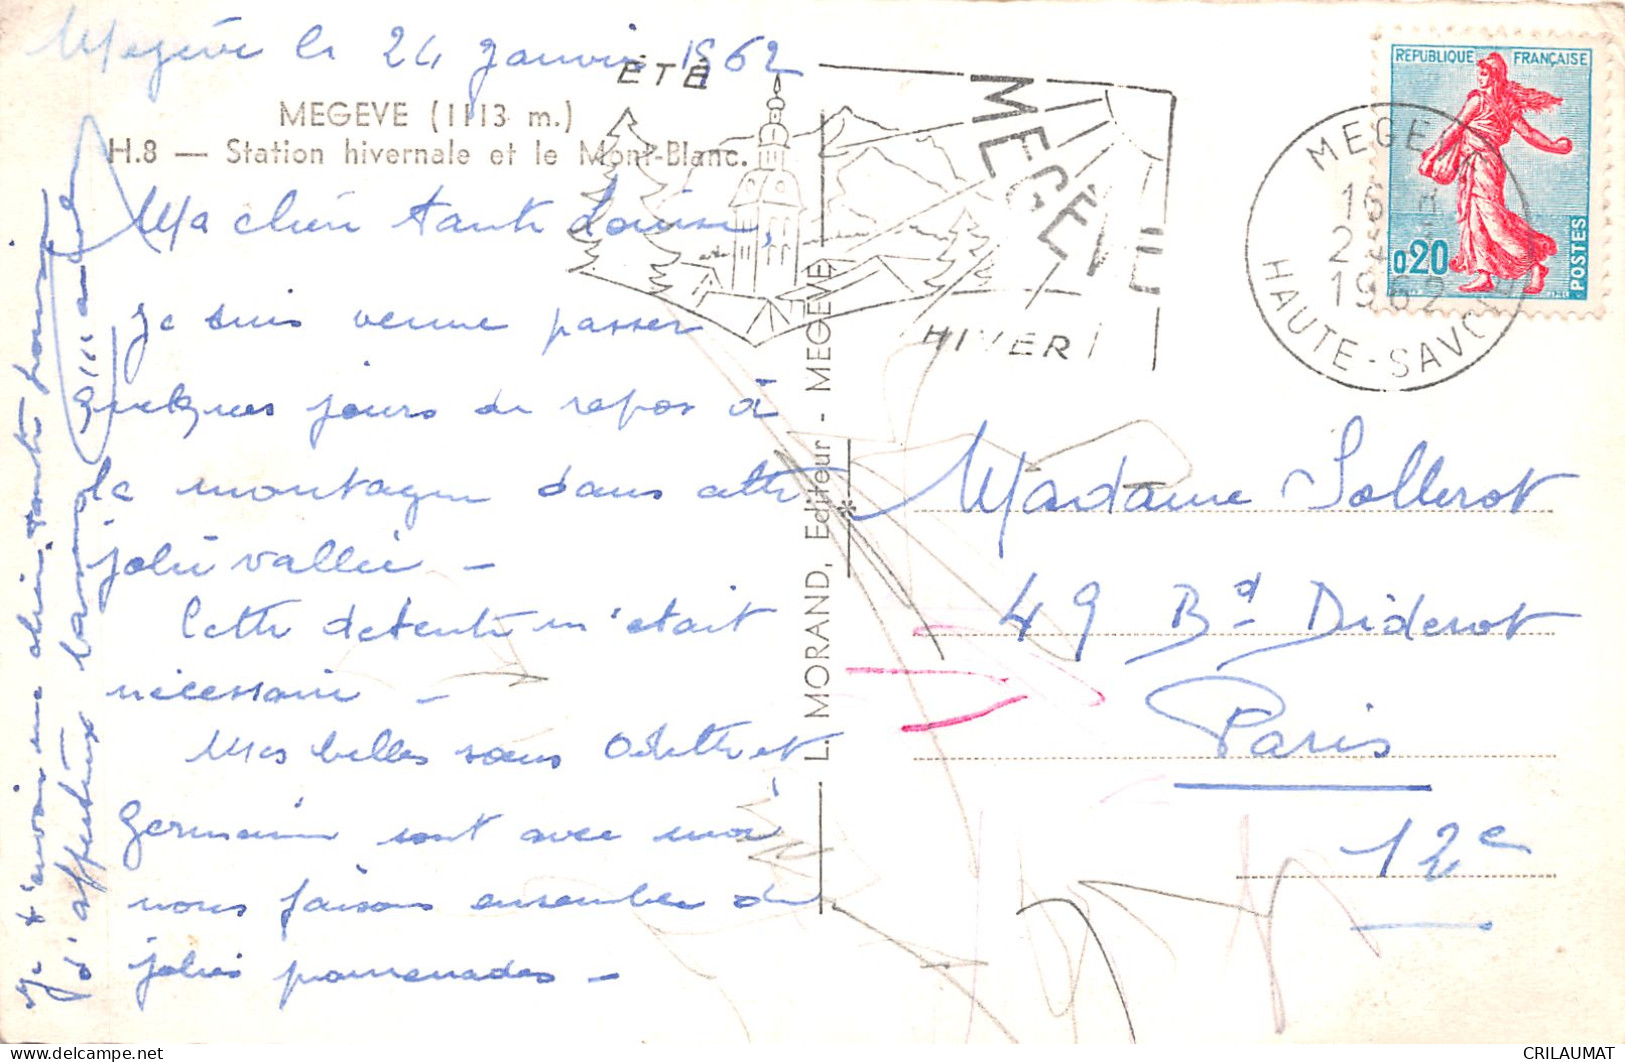 Megève le 24 Janvier 1962
MEGEVE (1113 m.)
H.8 — Station hivernale et le Mont-Blanc.
Ma chère tante Louise,
je suis venue passer
quelques jours de repos à
la montagne dans cette
jolie vallée –
Cette détente m'était
nécessaire –
Mes belles sœurs Odette et
Germaine sont avec moi
nous faisons ensemble de
jolies promenades –
Je t'envoie ma chère tante
d'affectueux baisers
L. MORAND, Editeur - MEGEVE
ÉTÉ
MEGÈVE
HIVER
MEGEVE
16
24
1962
HAUTE-SAVOIE
REPUBLIQUE FRANÇAISE
0,20
POSTES
Madame Sollerot
49 Bd Diderot
Paris
12e
CRILAUMAT